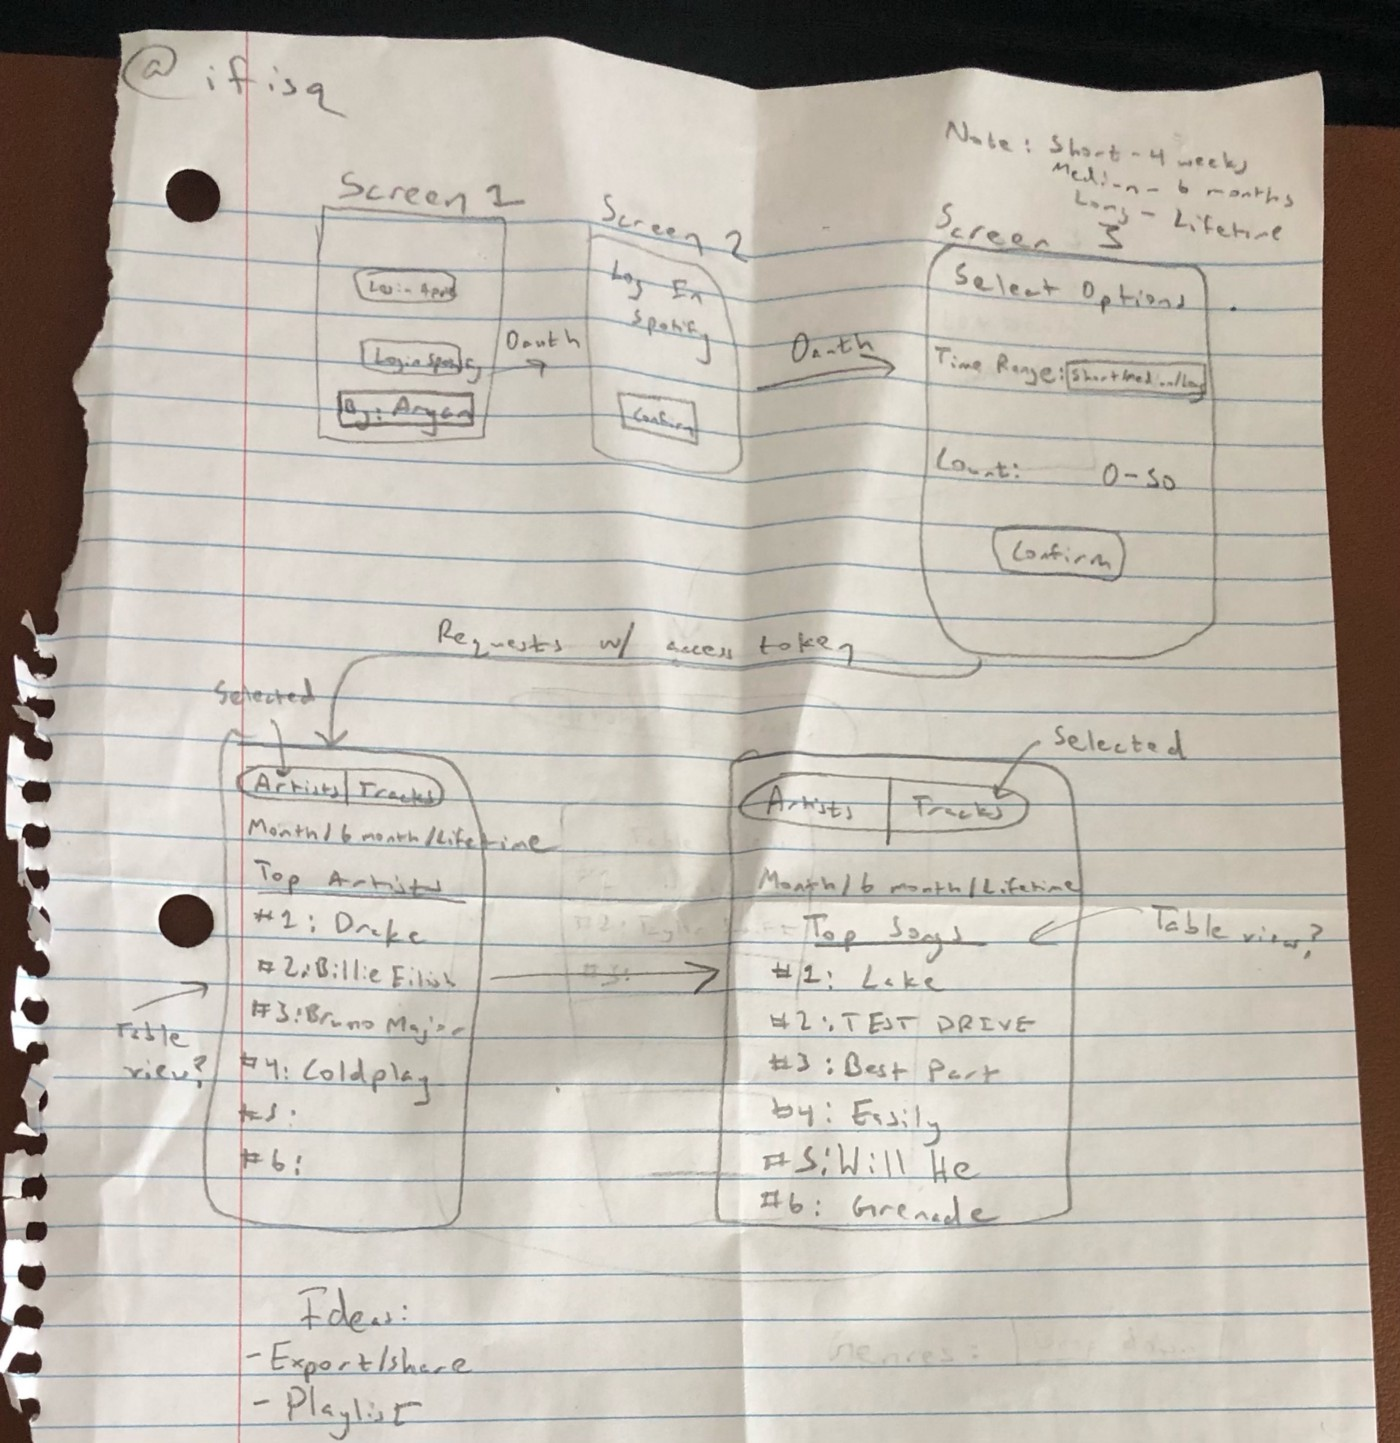 @ifisq
Note: Short - 4 weeks
Medium - 6 months
Long - Lifetime
Screen 1
Login Apple
Login Spotify
By: Aryan
Oauth
Screen 2
Log In
Spotify
Confirm
Oauth
Screen 3
Select Options
Time Range: Short/Medium/Long
Count: 0-50
Confirm
Requests w/ access token
Selected
Artists | Tracks
Month/6 month/Lifetime
Top Artists
#1: Drake
#2: Billie Eilish
#3: Bruno Major
#4: Coldplay
#5:
#6:
Table
view?
Selected
Artists | Tracks
Month/6 month/Lifetime
Top Songs
#1: Lake
#2: TEST DRIVE
#3: Best Part
#4: Easily
#5: Will He
#6: Grenade
Table view?
Ideas:
- Export/share
- Playlist
Genres: